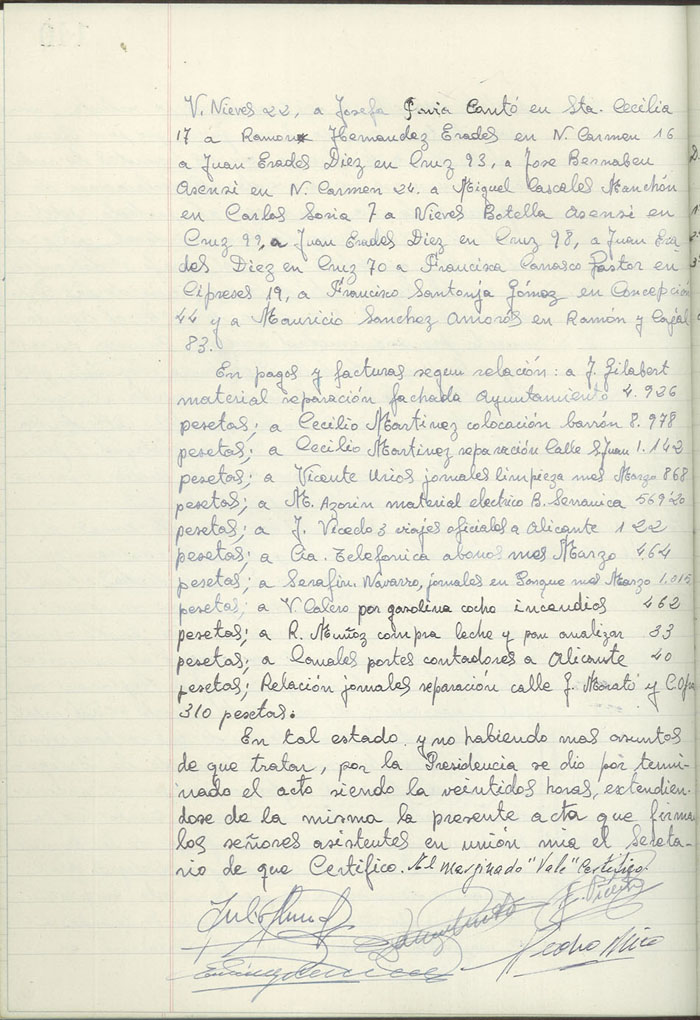 V. Nieves 22, a Josefa Cantó en Sta. Cecilia
17 a Ramon Hernandez Erades en N. Carmen 16
a Juan Erades Diez en Cruz 93, a Jose Bernabeu
Asensi en N. Carmen 24. a Miguel Cascales Manchón
en Carlos Soria 7 a Nieves Botella Asensi en
Cruz 99, a Juan Erades Diez en Cruz 98, a Juan Era
des Diez en Cruz 70 a Francisca Carrasco Pastor en
Cipreses 19, a Francisco Santonja Gómez en Concepción
44 y a Mauricio Sanchez Amorós en Ramón y Cajal
83.
En pagos y facturas segun relación: a J. Gilabert
material reparación fachada Ayuntamiento 4.926
pesetas; a Cecilio Martinez colocación barrón 8.978
pesetas; a Cecilio Martinez reparación Calle S. Juan 1.142
pesetas; a Vicente Urios jornales limpieza mes Marzo 868
pesetas; a M. Azorin material electrico B. Serranica 569'20
pesetas; a J. Vicedo 3 viajes oficiales a Alicante 122
pesetas; a Cia. Telefonica abonos mes Marzo 464
pesetas; a Serafin Navarro, jornales en Parque mes Marzo 1.015
pesetas; a V. Calero por gasolina coche incendios 462
pesetas; a R. Muñoz compra leche y pan analizar 33
pesetas; a Canales portes contadores a Alicante 40
pesetas; Relación jornales reparación calle J. Morató y
310 pesetas.
En tal estado y no habiendo mas asuntos
de que tratar, por la Presidencia se dio por termi
nado el acto siendo la veintidos horas, extendien-
dose de la misma la presente acta que firma
los señores asistentes en unión mia el Secreta-
rio de que Certifico. Al marginado "Vale" Certifico.
Pedro Mico